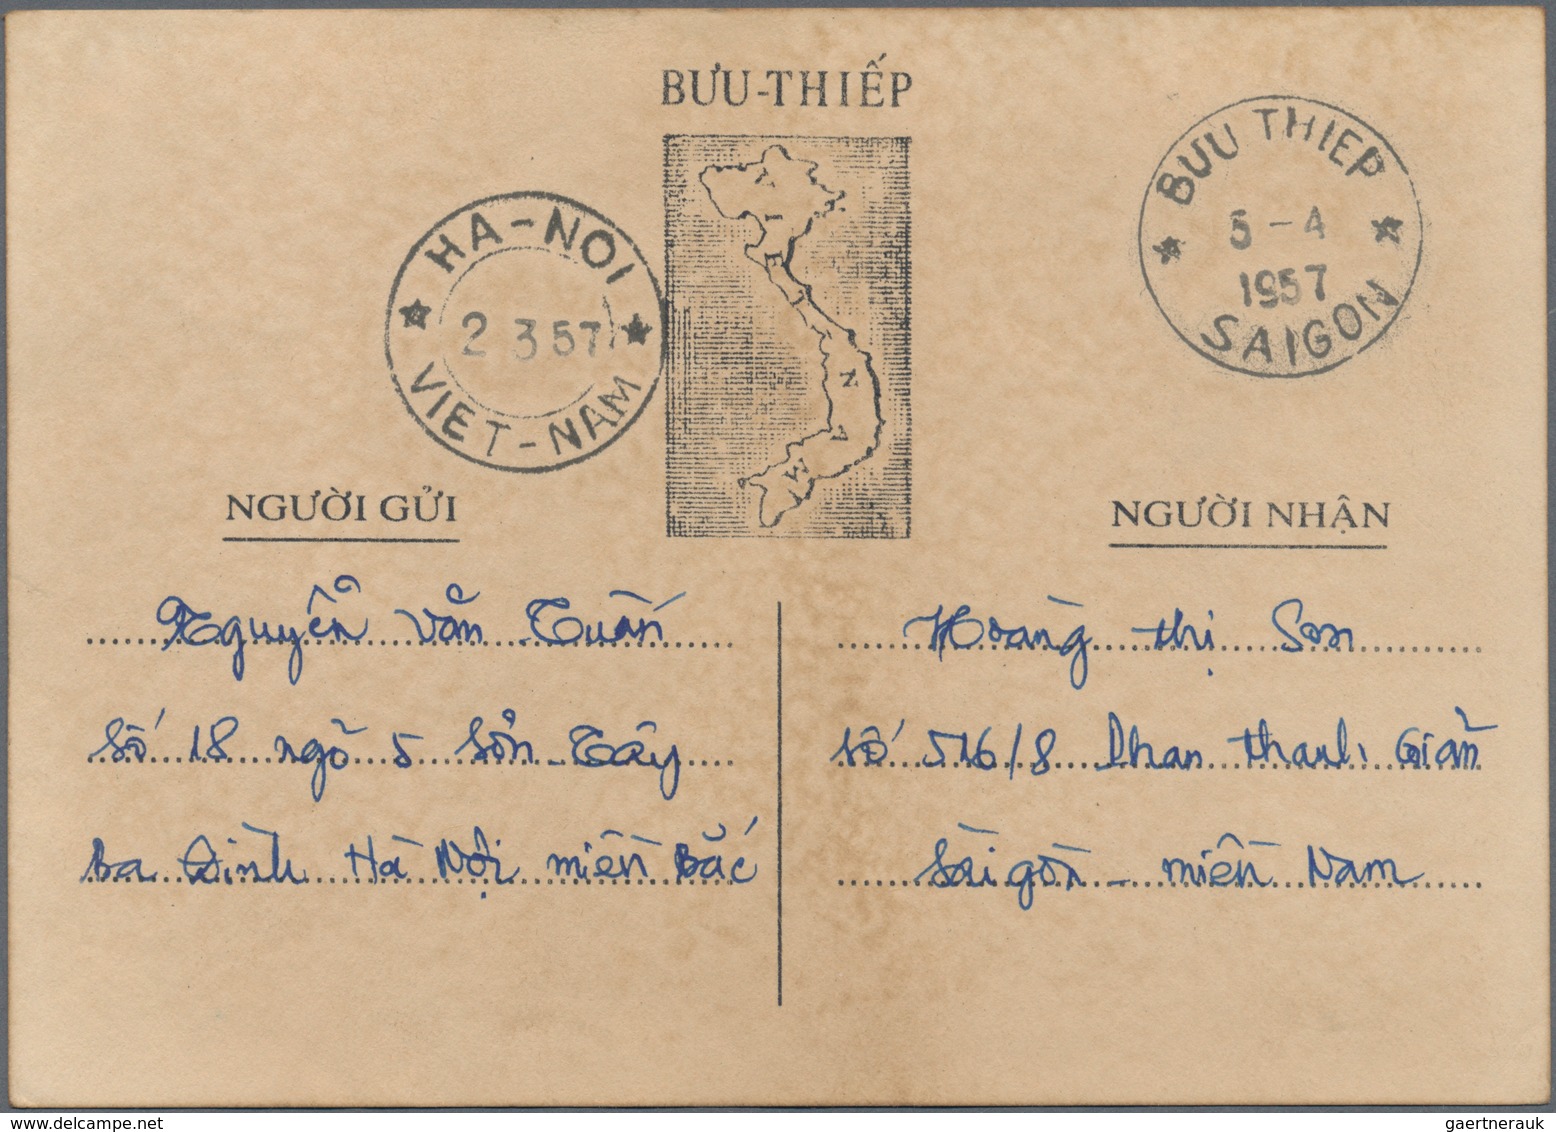 BƯU-THIẾP
HA-NOI
2 3 57
VIET-NAM
VIETNAM
BUU THIEP
5-4
1957
SAIGON
NGƯỜI GỬI
Nguyễn văn Tuấn
số 18 ngõ 5 Sơn Tây
Ba Đình Hà Nội miền Bắc
NGƯỜI NHẬN
Hoàng thị Sơn
số 516/8 Phan thanh Giản
Sài gòn - miền Nam
gaertnerauk @ www.delcampe.net